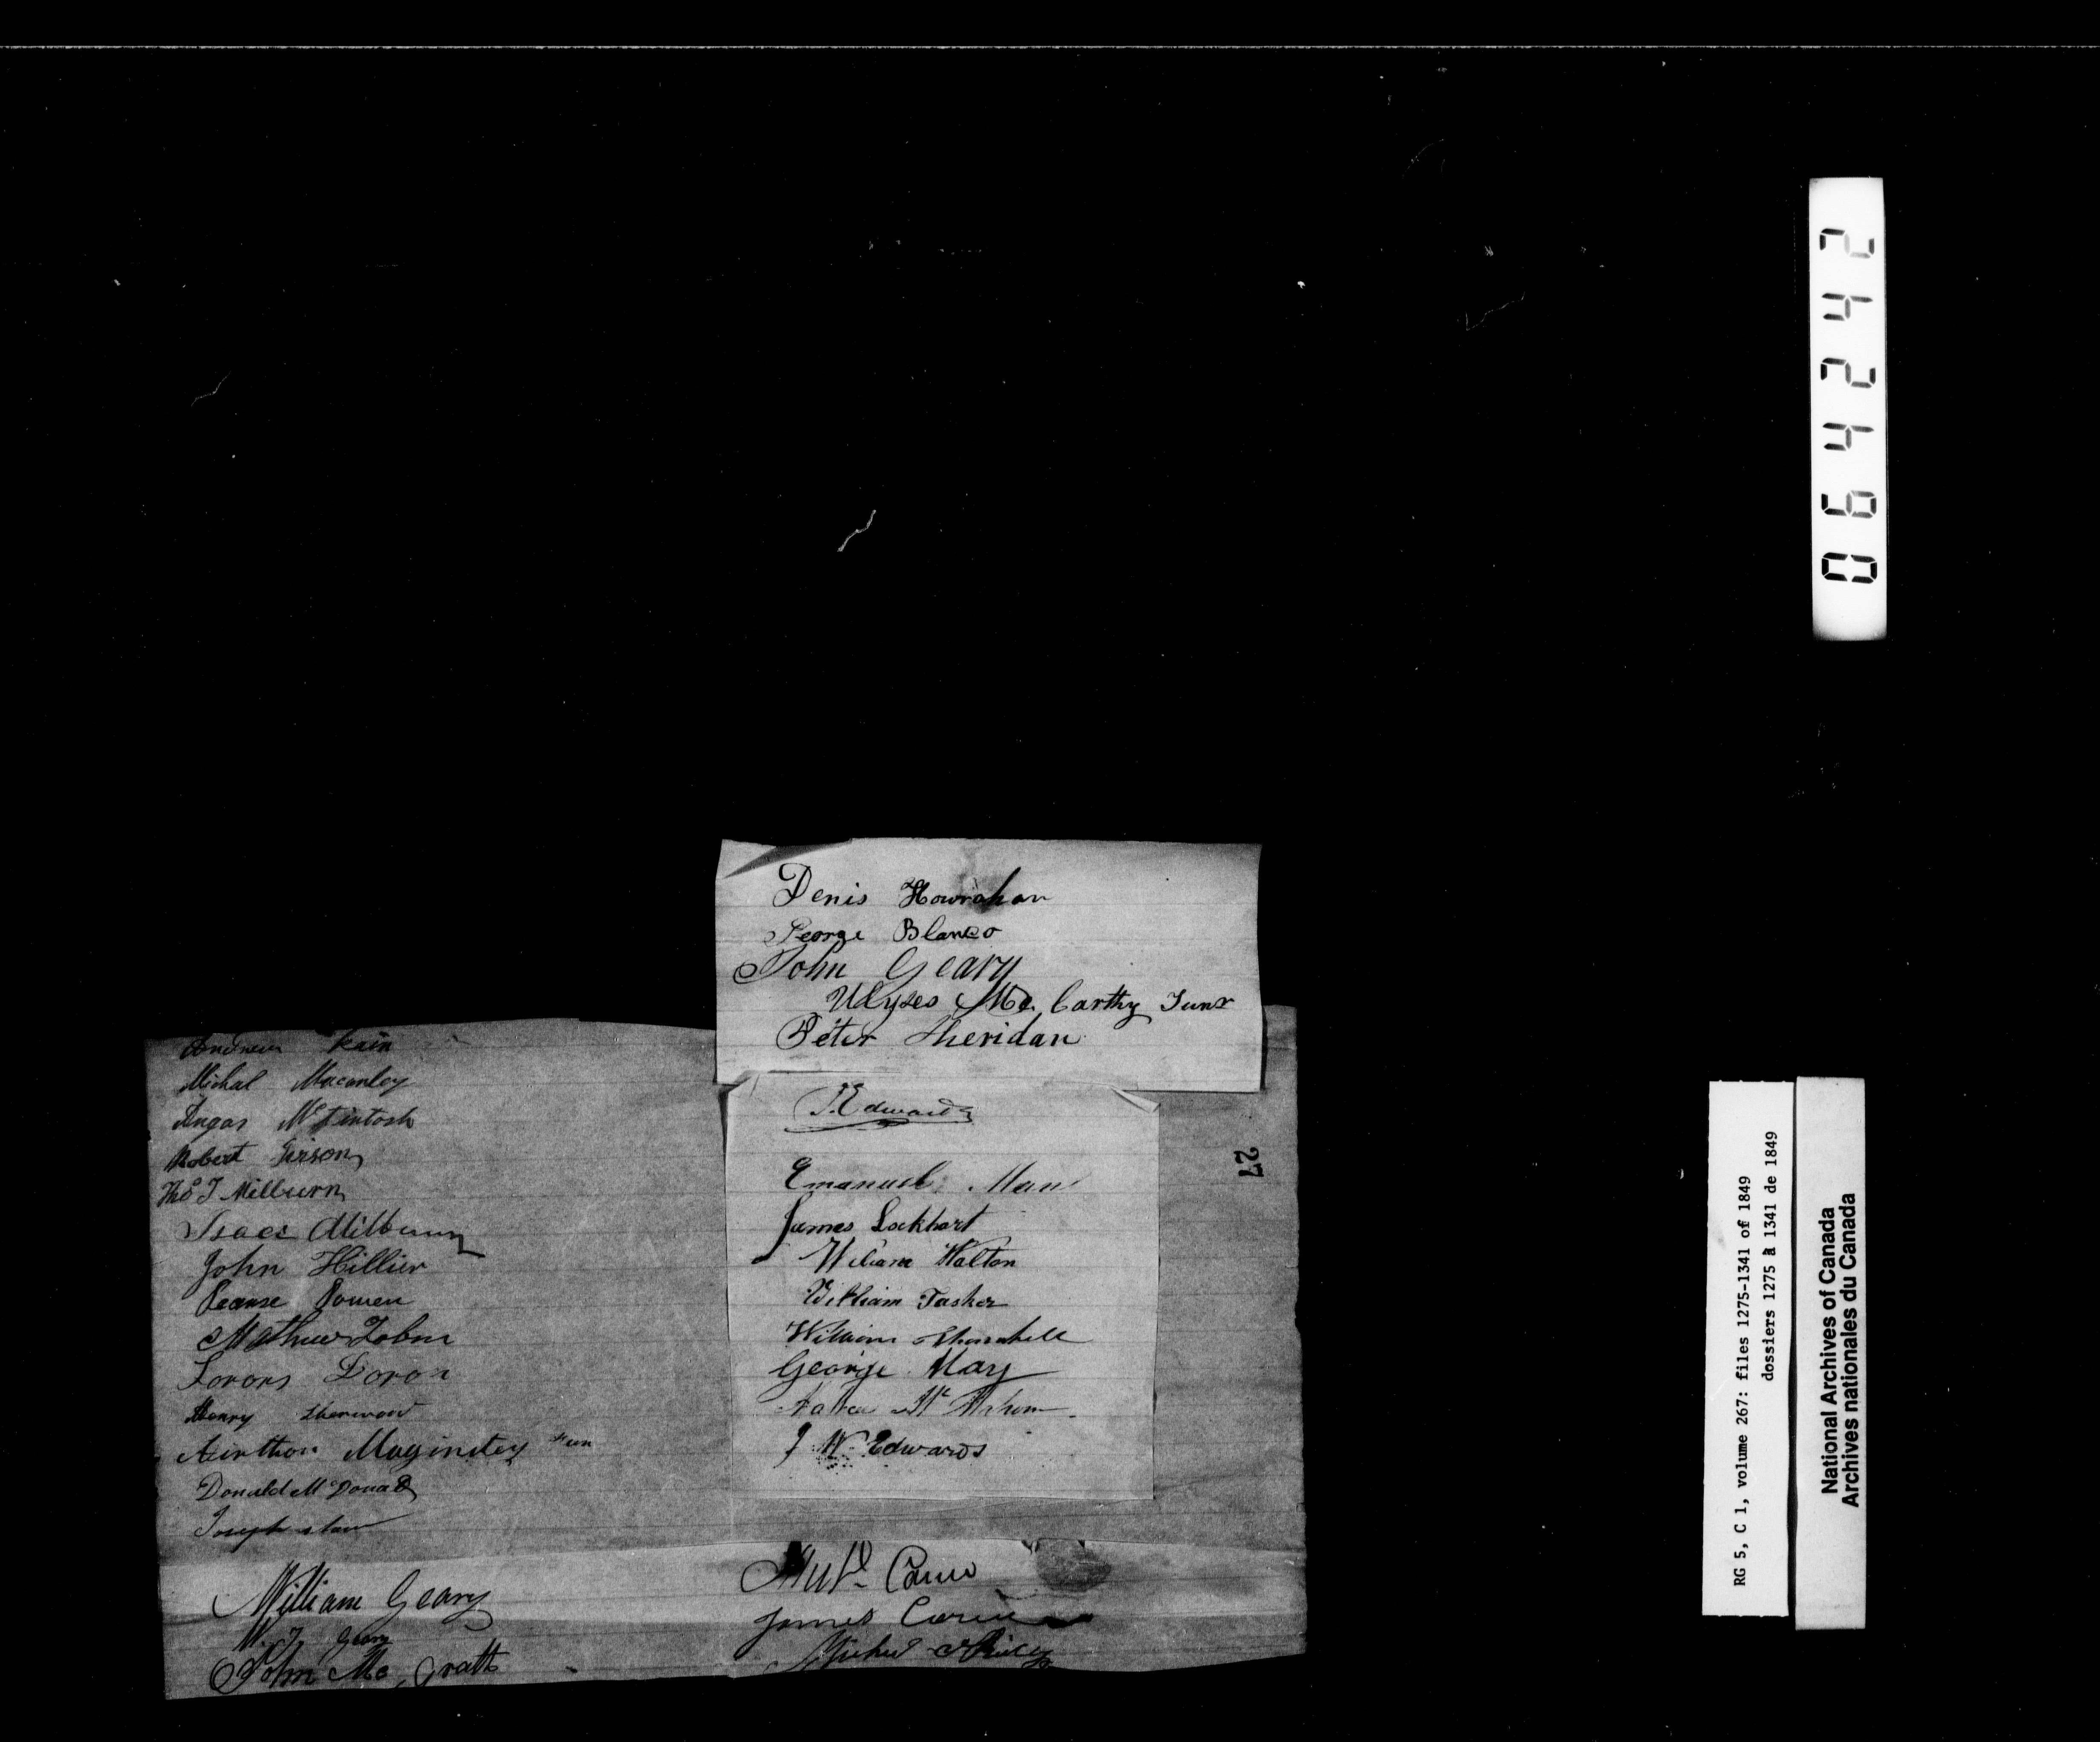 Denis Howrahan
George Blanco
John Geary
Ulyses Mc Carthy Junr
Peter Sheridan
Andrew Kain
Michal Macanley
Angas McIntosh
Robert
Thos J Milburn
Isaac Milburn
John Hillier
Pearse Power
Mathew Tobin
Doran
Henry Sherwood
Maginstey
Donald McDonald
Joseph
William Geary
Geary
John Mc Grath
Edwards
Emanuel Man
James Lockhart
William Walton
William Tasher
William Thornhill
George May
J W Edwards
James
27
064242
RG 5, C 1, volume 267: files 1275-1341 of 1849
dossiers 1275 à 1341 de 1849
National Archives of Canada
Archives nationales du Canada